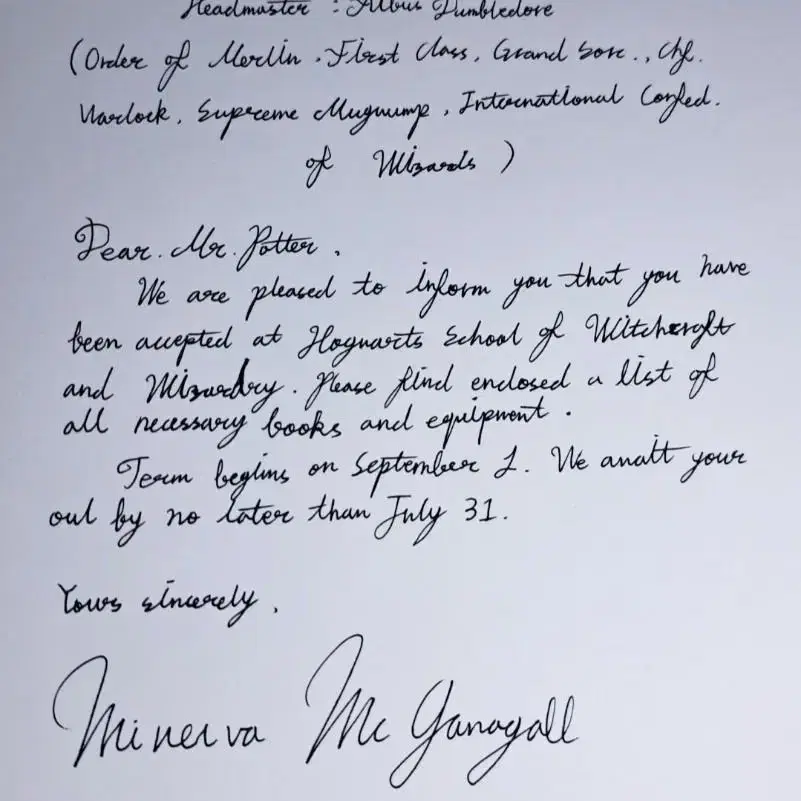 Headmaster : Albus Dumbledore
(Order of Merlin, First Class, Grand Sorc., Chf.
Warlock, Supreme Mugwump, International Confed.
of Wizards)
Dear. Mr. Potter,
We are pleased to inform you that you have
been accepted at Hogwarts School of Witchcraft
and Wizardry. Please find enclosed a list of
all necessary books and equipment.
Term begins on September 1. We await your
owl by no later than July 31.
Yours sincerely,
Minerva McGanagall